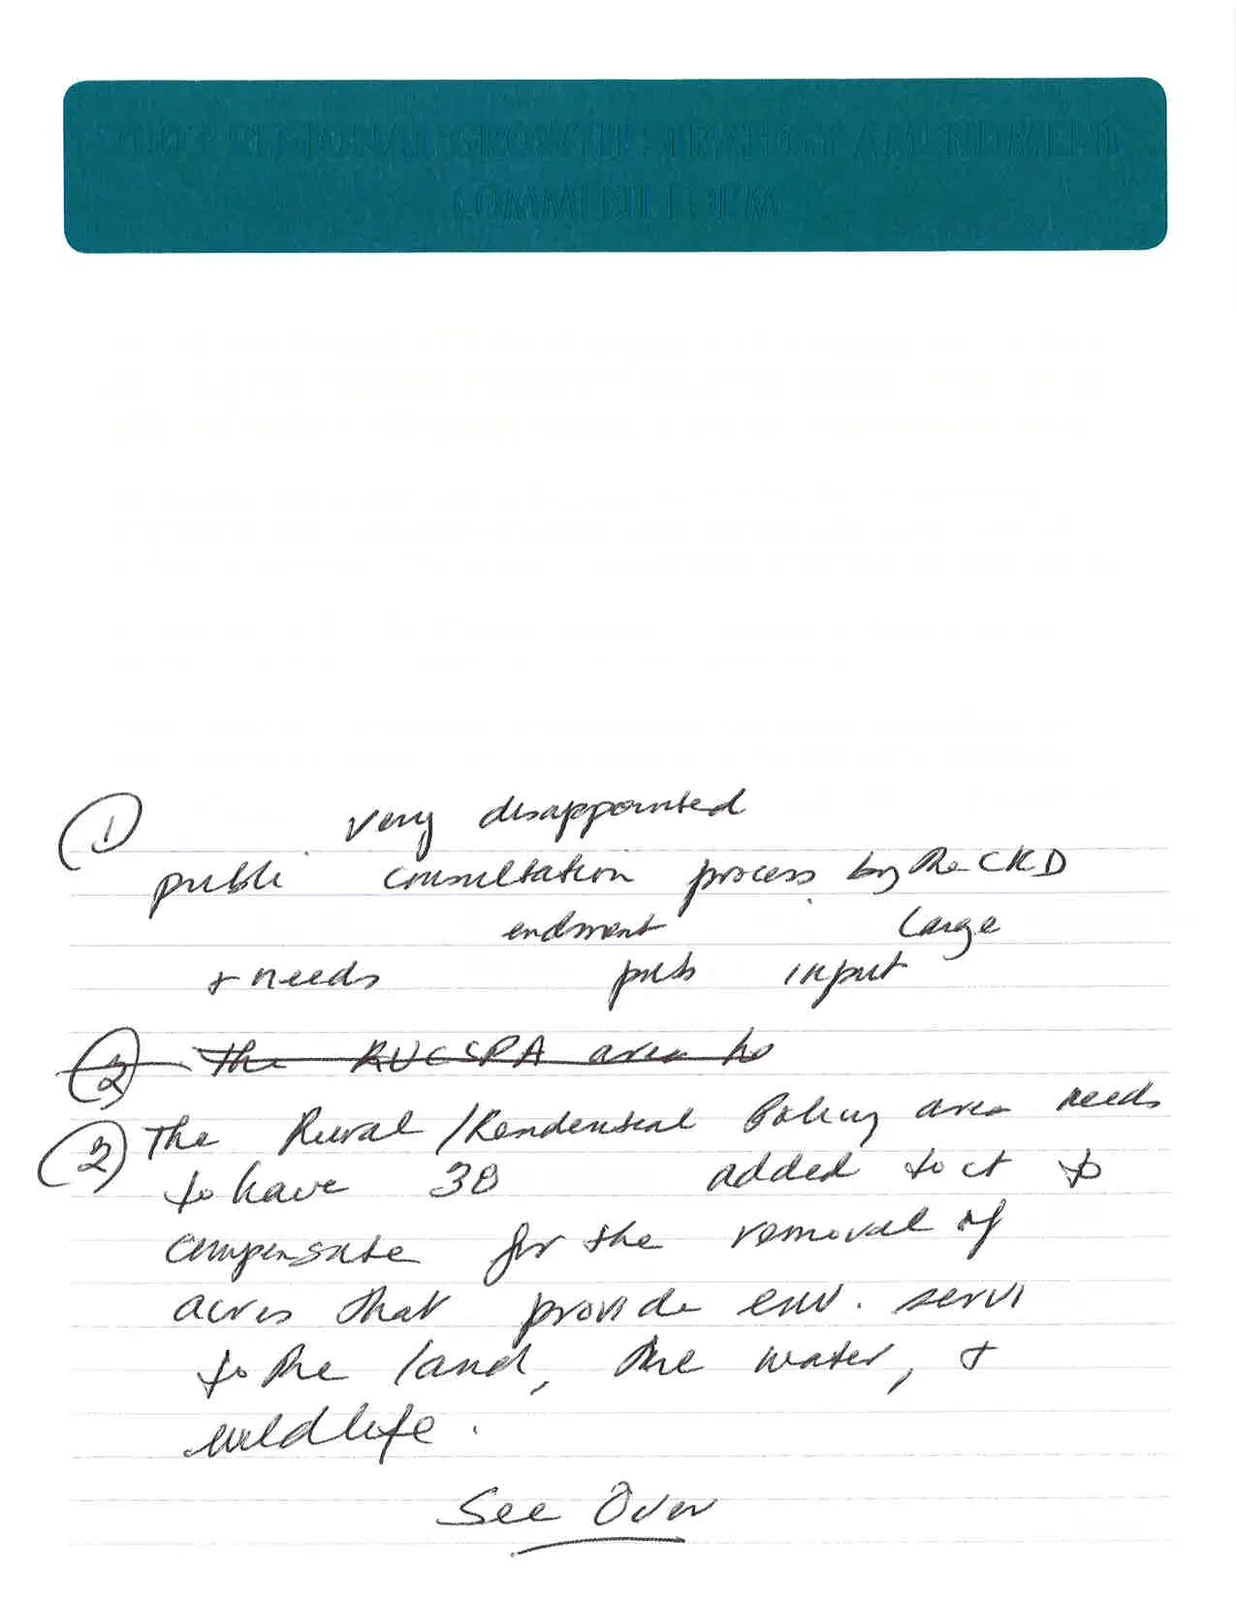 REGIONAL GROWTH STRATEGY AMENDMENT
COMMENT FORM
① very disappointed
public consultation process by the CRD
endment large
+ needs pub input
② the RUCSPA area ho
② The Rural / Residential Policy area needs
to have 38 added to it to
compensate for the removal of
acres that provide env. servi
to the land, the water, +
wildlife.
See Over